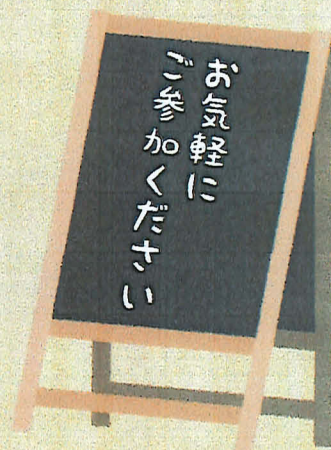 お気軽に
ご参加ください